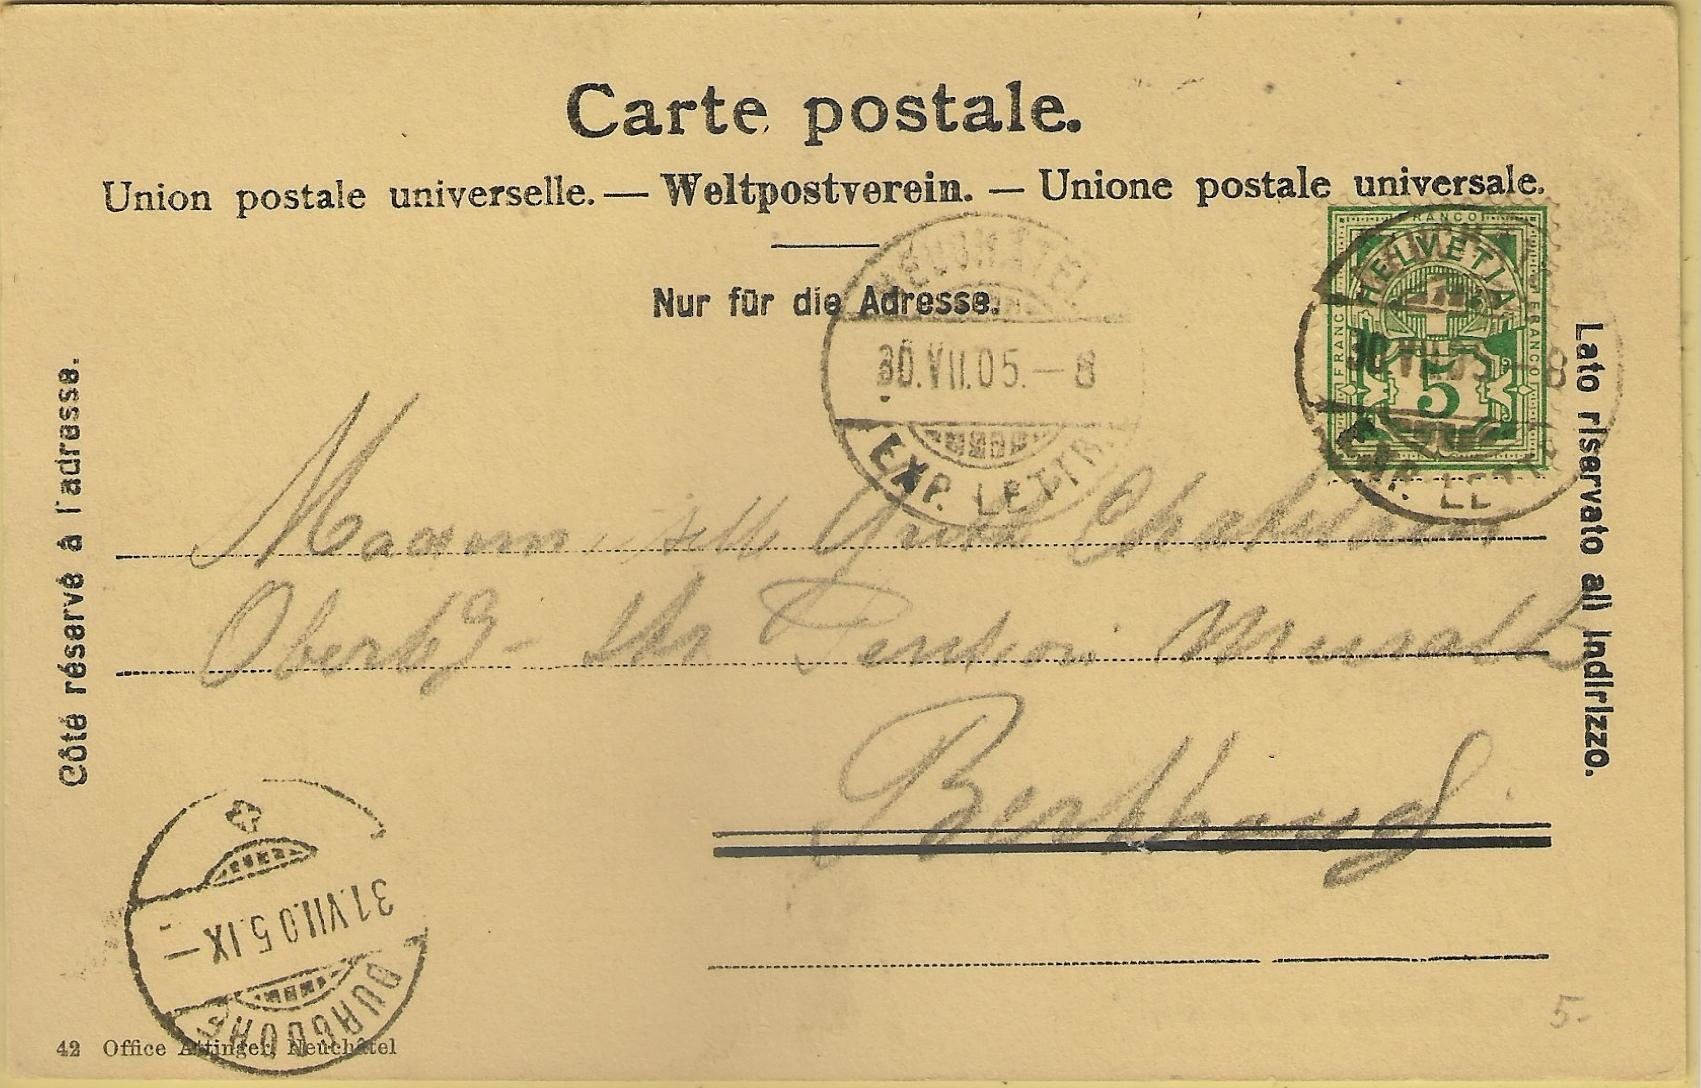 Carte postale.
Union postale universelle. — Weltpostverein. — Unione postale universale.
Nur für die Adresse.
Côté réservé à l'adresse.
Lato riservato all indirizzo.
FRANCO
HELVETIA
FRANCO
FRANCO
5
NEUCHÂTEL
30.VII.05.–8
EXP. LETTR.
30.VII.05–8
EXP. LETTR.
Pension
Berthoud
31.VII.05.IX–
BURGDORF
42 Office Attinger, Neuchâtel
5-